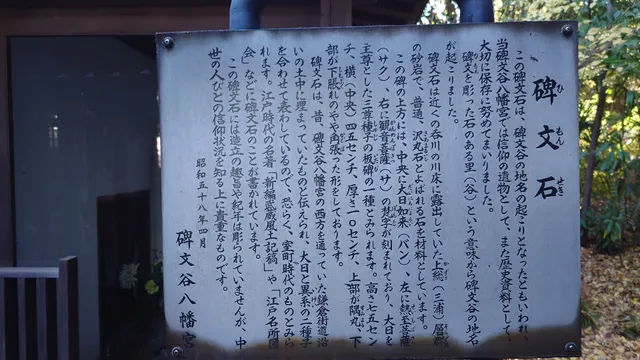 碑文石
ひもんせき
この碑文石は、碑文谷の地名の起こりとなったともいわれ、
当碑文谷八幡宮では信仰の遺物として、また歴史資料として、
大切に保存に努めてまいりました。
碑文を彫った石のある里(谷)という意味から碑文谷の地名
が起こりました。
碑文石は近くの呑川の川床に露出していた上総(三浦)層群
の砂岩で、普通、沢丸石とよばれる石を材料としています。
この碑の上方には、中央に大日如来(バン)、左に勢至菩薩
(サク)、右に観音菩薩(サ)の梵字が刻まれており、大日を
主尊とした三尊種子の板碑の一種とみられます。高さ七五セン
チ、横(中央)四五センチ、厚さ一〇センチ、上部が隅丸、下
部が下脹れのやや角張った形をしております。
碑文石は、昔、碑文谷八幡宮の西方を通っていた鎌倉街道沿
いの土中に埋まっていたものと伝えられ、大日と異系の二種子
を合わせて表わしているので、恐らく、室町時代のものとみら
れます。江戸時代の名著「新編武蔵風土記稿」や「江戸名所図
会」などに碑文石のことが書かれています。
この碑文石には造立の趣旨や紀年は彫られていませんが、中
世の人びとの信仰状況を知る上に貴重なものです。
昭和五十八年四月
碑文谷八幡宮